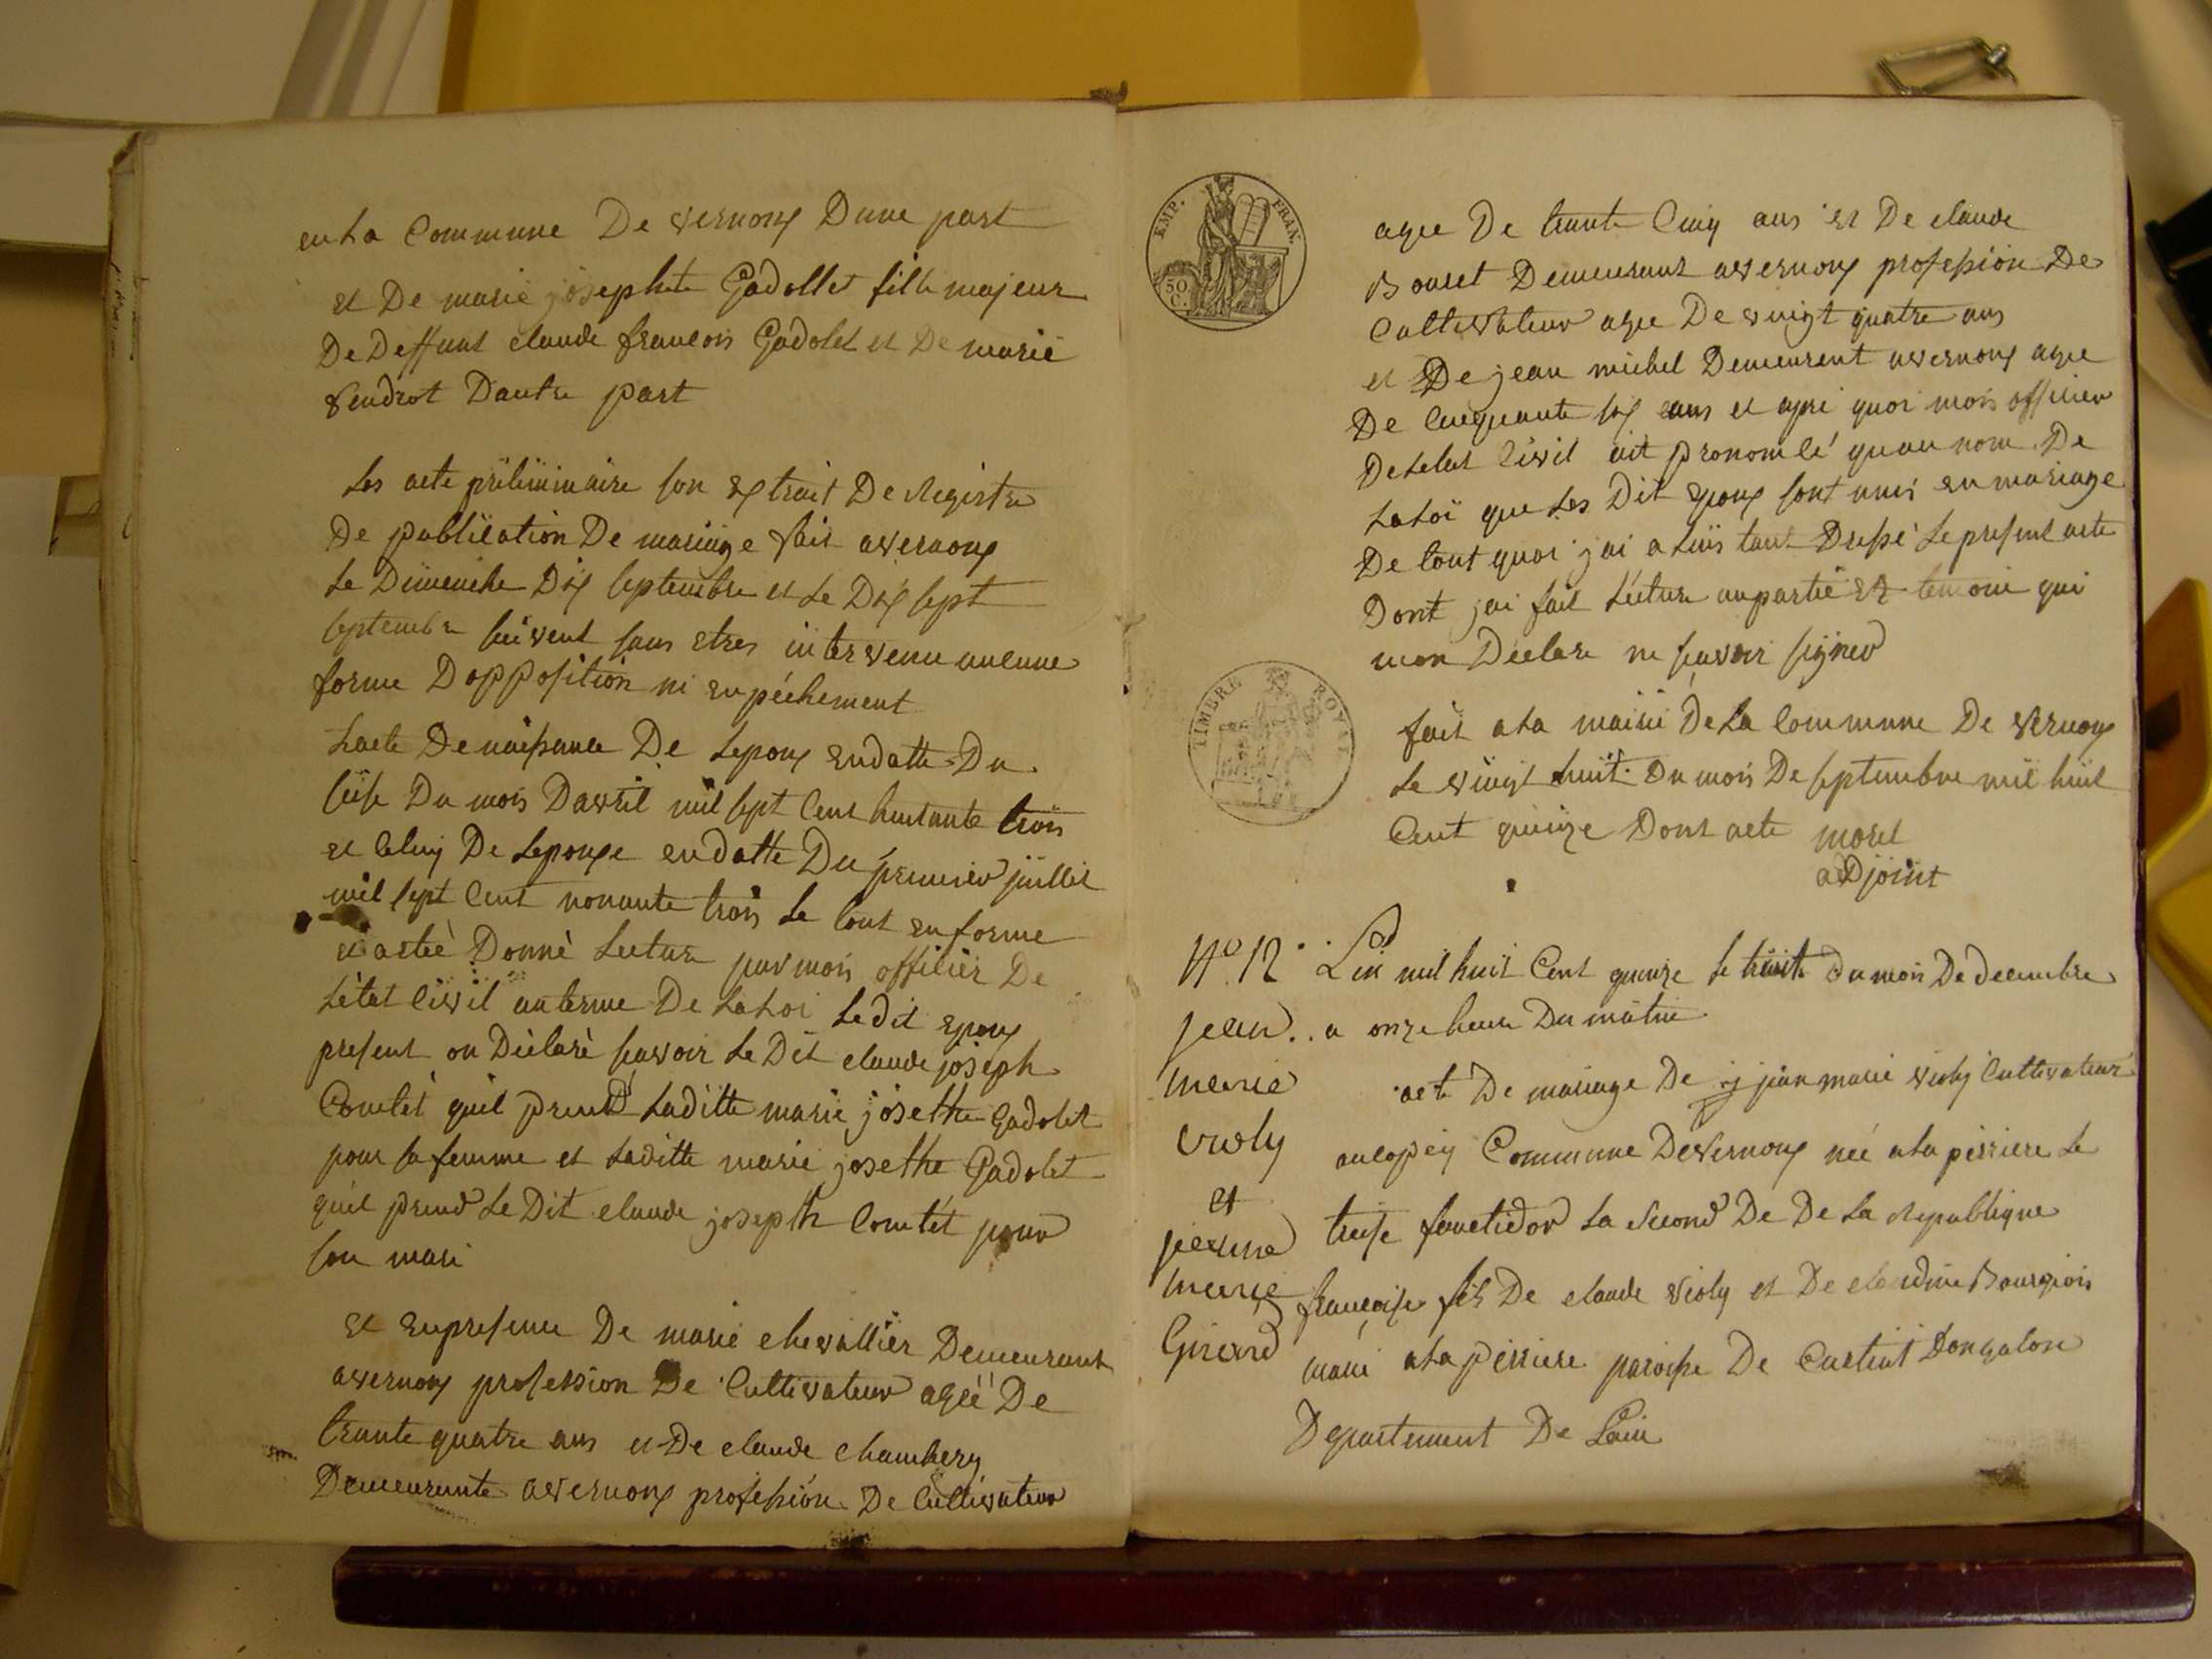 en La Commune De vernoux Dune part
et De marie josephte Gadollet fille majeur
De Deffunt claude francois Gadolet et De marie
vendrot Dautre part
Les acte préliminaire son extrait De Registre
De publication De mariage fait a vernoux
Le Dimenche Dix septembre et Le Dix sept
septembre suivent sans etres intervenu aucune
forme D'opposition ni enpéchement
Lacte De naissance De Lepoux en datte Du
seise Du mois D'avril mil sept Cent huitante trois
et Celuy De Lepouse en datte Du premier juillet
mil sept Cent nonante trois Le tout en forme
et a eteé Donné Lecture par moi officier De
Létat Civil au terme De La Loi Le dit epoux
present on Déclaré savoir Le Dit claude joseph
Comtét quil prend Laditte marie josethe Gadolet
pour sa femme et Laditte marie josethe Gadolet
quel prend Le Dit claude joseph Comtét pour
son mari
et en presence De marie chevallier Demeurant
a vernoux profession De Cultivateur ageé De
trante quatre ans et De claude chambery
Demeurante a vernoux profession De Cultivateur
EMP. FRAN.
50 C.
agee De trante Cinq ans et De claude
Bouset Demeurant a vernoux profession De
Cultivateur agee De vingt quatre ans
et De jean michel Demeurent a vernoux agee
De Cinquante six ans et apre quoi moi officier
De Letat Civil ait prononcé quau nom De
La Loi que Les Dit epoux sont unis en mariage
De tout quoi j'ai a Linstant Dressé Le present acte
Dont j'ai fait Lecture au partie et temoin qui
mon Déclare ne savoir signer
TIMBRE ROYAL
fait a La mairie De La Commune De vernoux
Le vingt huit Du mois De septembre mil huit
Cent quinze Dont acte morel
adjoint
No. 12 Lan mil huit Cent quinze Le trente Du mois De Decembre
jean.. a onze heure Du matin
marie acte De mariage De j jean marie violy Cultivateur
violy Commune De vernoux née a La perriere Le
et treise La Second De De La Republique
jeanne francaise fils De claude violy et De claudine Bourgeois
marie marié a La perriere paroisse De Curtiat Dongalon
Girard Departement De Lain